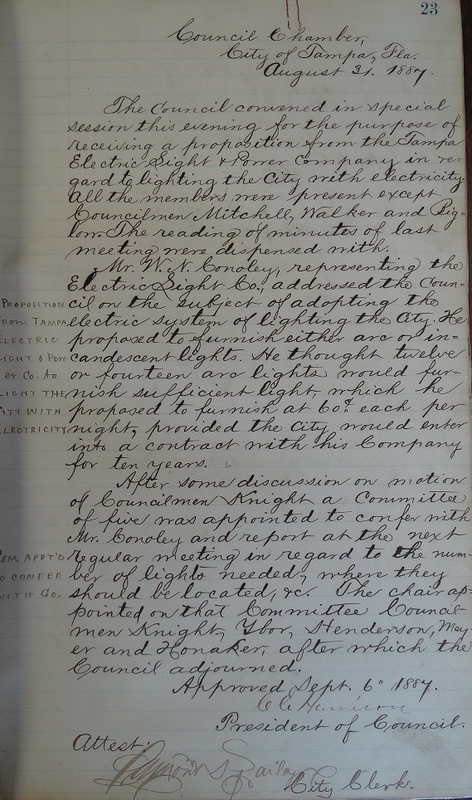 23
Council Chamber,
City of Tampa, Fla.
August 31. 1887.
The Council convened in special
session this evening for the purpose of
receiving a proposition from the Tampa
Electric Light & Power Company in re-
gard to lighting the City with electricity.
All the members were present except
Councilmen Mitchell, Walker and Big-
low. The reading of minutes of last
meeting were dispensed with.
Mr. W. N. Conoley, representing the
Electric Light Co., addressed the Coun-
cil on the subject of adopting the
electric system of lighting the City. He
proposed to furnish either arc or in-
candescent lights. He thought twelve
or fourteen arc lights would fur-
nish sufficient light, which he
proposed to furnish at 60¢ each per
night, provided the City would enter
into a contract with his Company
for ten years.
PROPOSITION
FROM TAMPA
ELECTRIC
LIGHT & POW-
ER CO. TO
LIGHT THE
CITY WITH
ELECTRICITY
After some discussion on motion
of Councilmen Knight a Committee
of five was appointed to confer with
Mr. Conoley and report at the next
regular meeting in regard to the num-
ber of lights needed, where they
should be located, &c. The chair ap-
pointed on that Committee Council-
men Knight, Ybor, Henderson, May-
er and Honaker, after which the
Council adjourned.
COM. APPT'D
TO CONFER
WITH CO.
Approved Sept. 6" 1887.
President of Council.
Attest:
City Clerk.